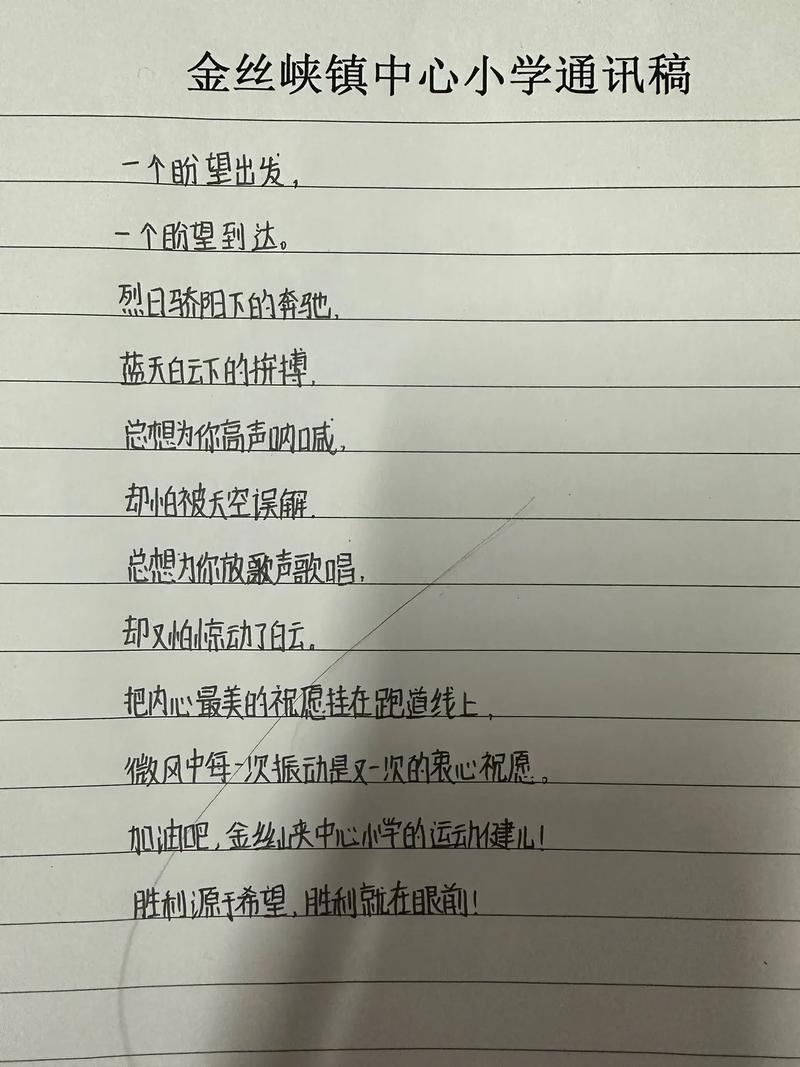 金丝峡镇中心小学通讯稿
一个盼望出发,
一个盼望到达。
烈日骄阳下的奔驰,
蓝天白云下的拼搏,
总想为你高声呐喊,
却怕被天空误解,
总想为你放歌声歌唱,
却又怕惊动了白云。
把内心最美的祝愿挂在跑道线上,
微风中每一次振动是又一次的衷心祝愿。
加油吧,金丝峡中心小学的运动健儿!
胜利源于希望,胜利就在眼前!